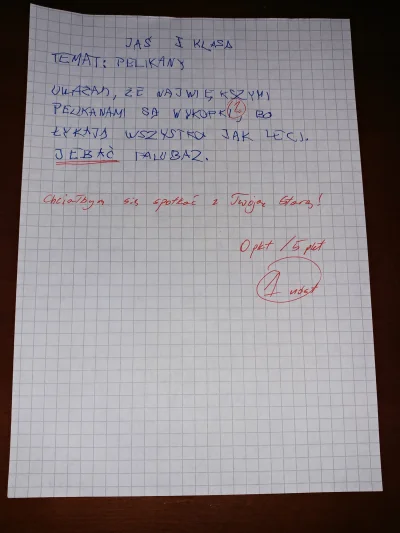 JAŚ I KLASA
TEMAT: PELIKANY
UWAŻAM, ŻE NAJWIĘKSZYMI
PELIKANAMI SA WYKOPKI BO
ŁYKAJĄ WSZYSTKO JAK LECI.
JEBAĆ FALUBAZ.
Chciałbym się spotkać z Twoją Starą!
0 pkt / 5 pkt
1 ndst